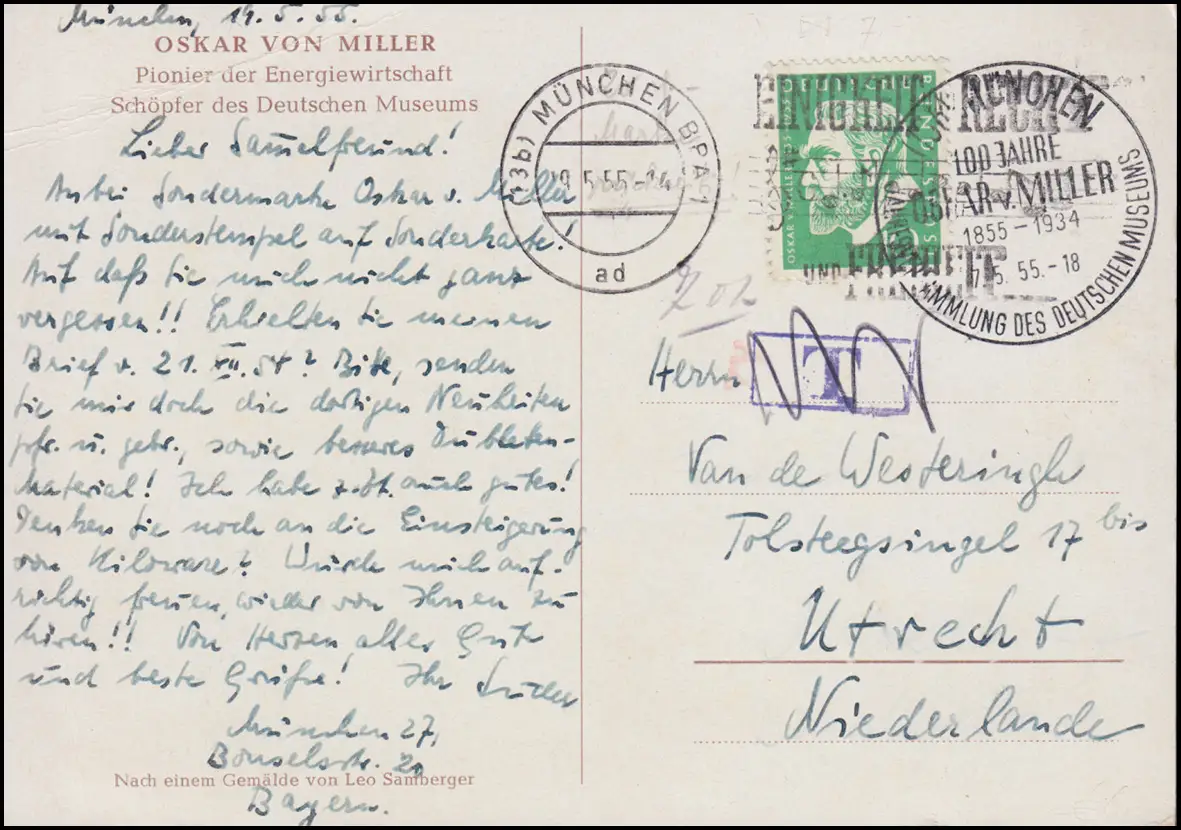 München, 19. 5. 55.
OSKAR VON MILLER
Pionier der Energiewirtschaft
Schöpfer des Deutschen Museums
Lieber Sammelfreund!
Anbei Sondermarke Oskar v. Miller
mit Sonderstempel auf Sonderkarte!
Auf daß Sie mich nicht ganz
vergessen!! Erhielten Sie meinen
Brief v. 21. VII. 54? Bitte, senden
Sie mir doch die dortigen Neuheiten
pfr. u. gebr., sowie besseres Dubletten-
Material! Ich habe z. Zt. auch gutes!
Denken Sie noch an die Einsteigerung
von Kiloware? Würde mich auf-
richtig freuen, wieder von Ihnen zu
hören!! Von Herzen alles Gute
und beste Grüße! Ihr
München 27,
Bonselsstr. 20
Nach einem Gemälde von Leo Samberger
Bayern.
(13b) MÜNCHEN BPA 1
19.5.55.-14
ad
EINIGKEIT RECHT
UND FREIHEIT
BUNDESPOST
OSKAR VON MILLER
MÜNCHEN
100 JAHRE
OSKAR v. MILLER
1855-1934
7.5.55.-18
SAMMLUNG DES DEUTSCHEN MUSEUMS
T
Herrn
Van de Weteringh
Tolsteegsingel 17 bis
Utrecht
Niederlande